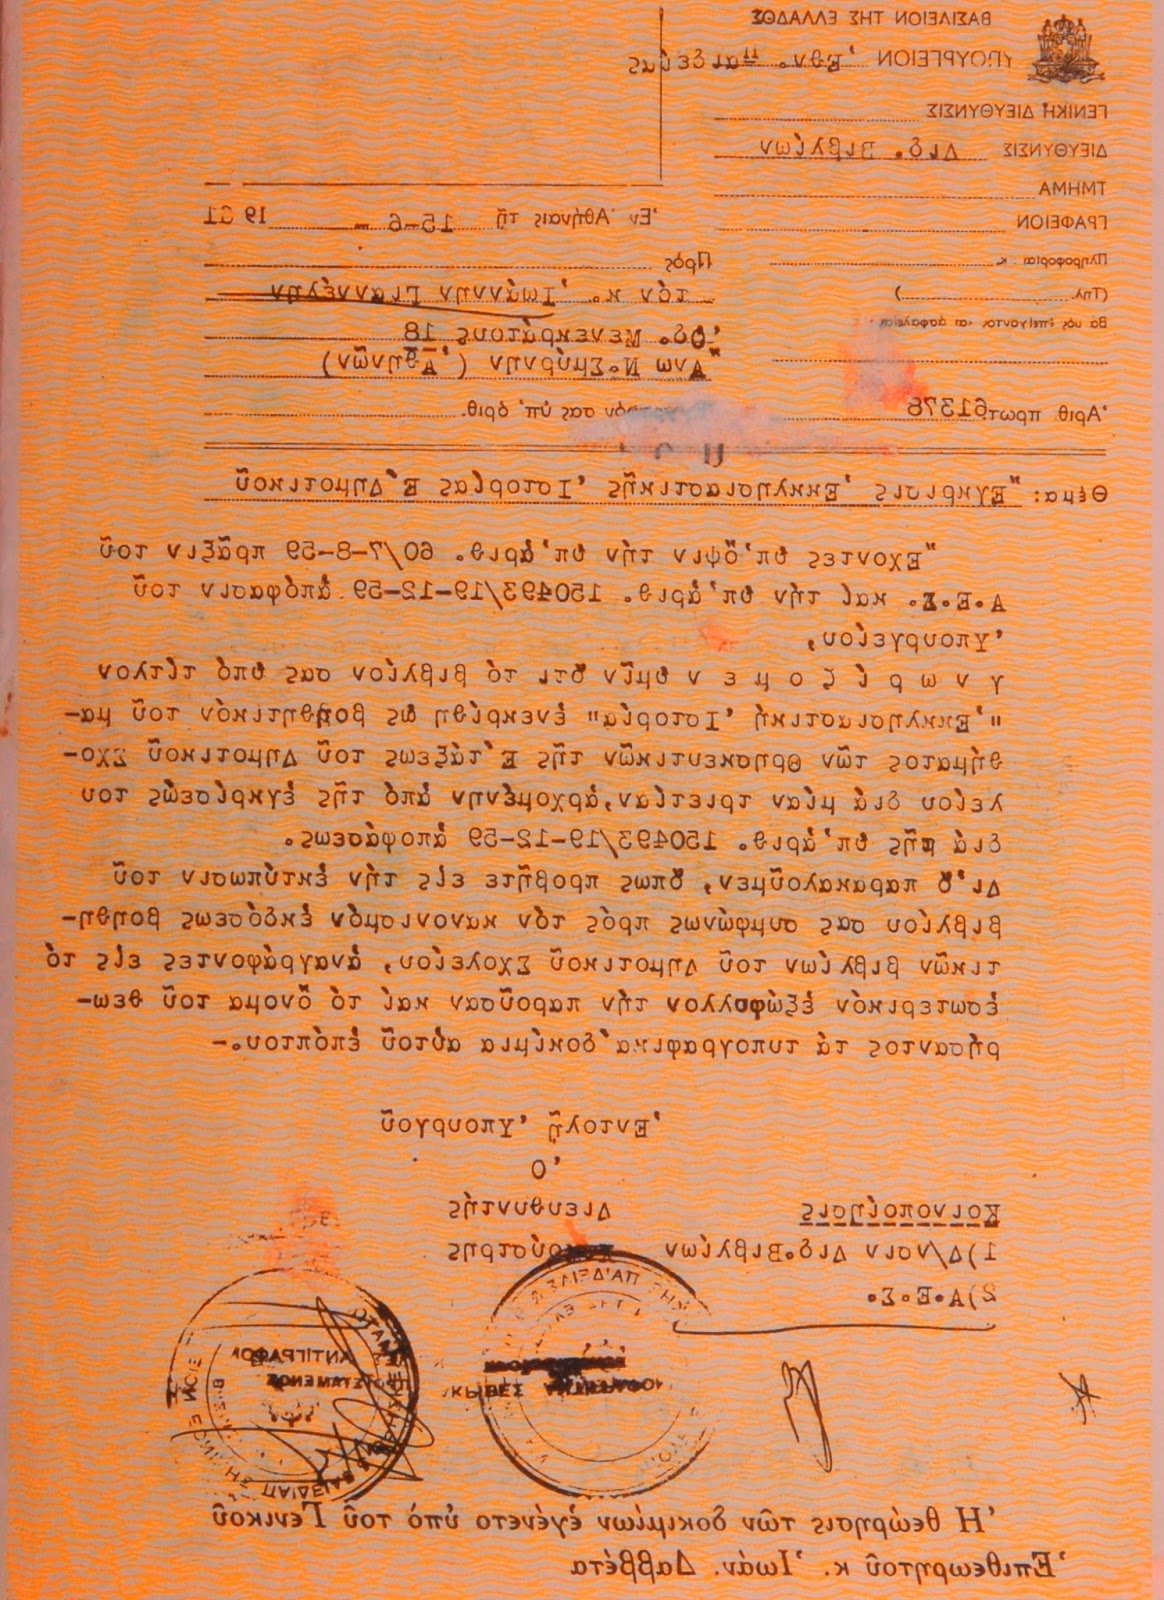 ΒΑΣΙΛΕΙΟΝ ΤΗΣ ΕΛΛΑΔΟΣ
ΥΠΟΥΡΓΕΙΟΝ Ἐθν. Παιδείας
ΓΕΝΙΚΗ ΔΙΕΥΘΥΝΣΙΣ
ΔΙΕΥΘΥΝΣΙΣ Διδ. Βιβλίων
ΤΜΗΜΑ
ΓΡΑΦΕΙΟΝ
Πληροφορίαι : κ.
(Τηλ. )
Ἀριθ. πρωτ. 61378
Ἐν Ἀθήναις τῇ 15-6- 1961
Πρός
τόν κ. Ἰωάννην Γιαννέλην
Ὁδ. Μενεκράτους 18
Ἄνω Ν.Σμύρνην (Ἀθηνῶν)
σας ὑπ' ἀριθ.
Θέμα: "Ἔγκρισις Ἐκκλησιαστικῆς Ἱστορίας Ε΄Δημοτικοῦ
Ἔχοντες ὑπ'ὄψιν τήν ὑπ'ἀριθ. 60/7-8-59 πρᾶξιν τοῦ
Α.Ε.Σ. καί τήν ὑπ'ἀριθ. 150493/19-12-59 ἀπόφασιν τοῦ
Ὑπουργείου,
γ ν ω ρ ί ζ ο μ ε ν ὑμῖν ὅτι τό βιβλίον σας ὑπό τίτλον
"Ἐκκλησιαστική Ἱστορία" ἐνεκρίθη ὡς βοηθητικόν τοῦ μα-
θήματος τῶν Θρησκευτικῶν τῆς Ε΄τάξεως τοῦ Δημοτικοῦ Σχο-
λείου διά μίαν τριετίαν,ἀρχομένην ἀπό τῆς ἐγκρίσεώς του
διά τῆς ὑπ'ἀριθ. 150493/19-12-59 ἀποφάσεως.
Δι'ὅ παρακαλοῦμεν, ὅπως προβῆτε εἰς τήν ἐκτύπωσιν τοῦ
βιβλίου σας συμφώνως πρός τόν κανονισμόν ἐκδόσεως βοηθη-
τικῶν βιβλίων τοῦ Δημοτικοῦ Σχολείου, ἀναγράφοντες εἰς τό
ἐσωτερικόν ἐξώφυλλον τήν παροῦσαν καί τό ὄνομα τοῦ θεω-
ρήσαντος τά τυπογραφικά δοκίμια αὐτοῦ ἐπόπτου.-
Ἐντολῇ Ὑπουργοῦ
Ὁ
Διευθυντής
Κοινοποίησις
1)Δ/νσιν Διδ.Βιβλίων
2)Α.Ε.Σ.
ΑΚΡΙΒΕΣ ΑΝΤΙΓΡΑΦΟΝ
ΑΝΤΙΓΡΑΦΟΝ
ΠΡΟΪΣΤΑΜΕΝΟΣ
Ἡ θεώρησις τῶν δοκιμίων ἐγένετο ὑπό τοῦ Γενικοῦ
Ἐπιθεωρητοῦ κ. Ἰωάν. Δαββέτα